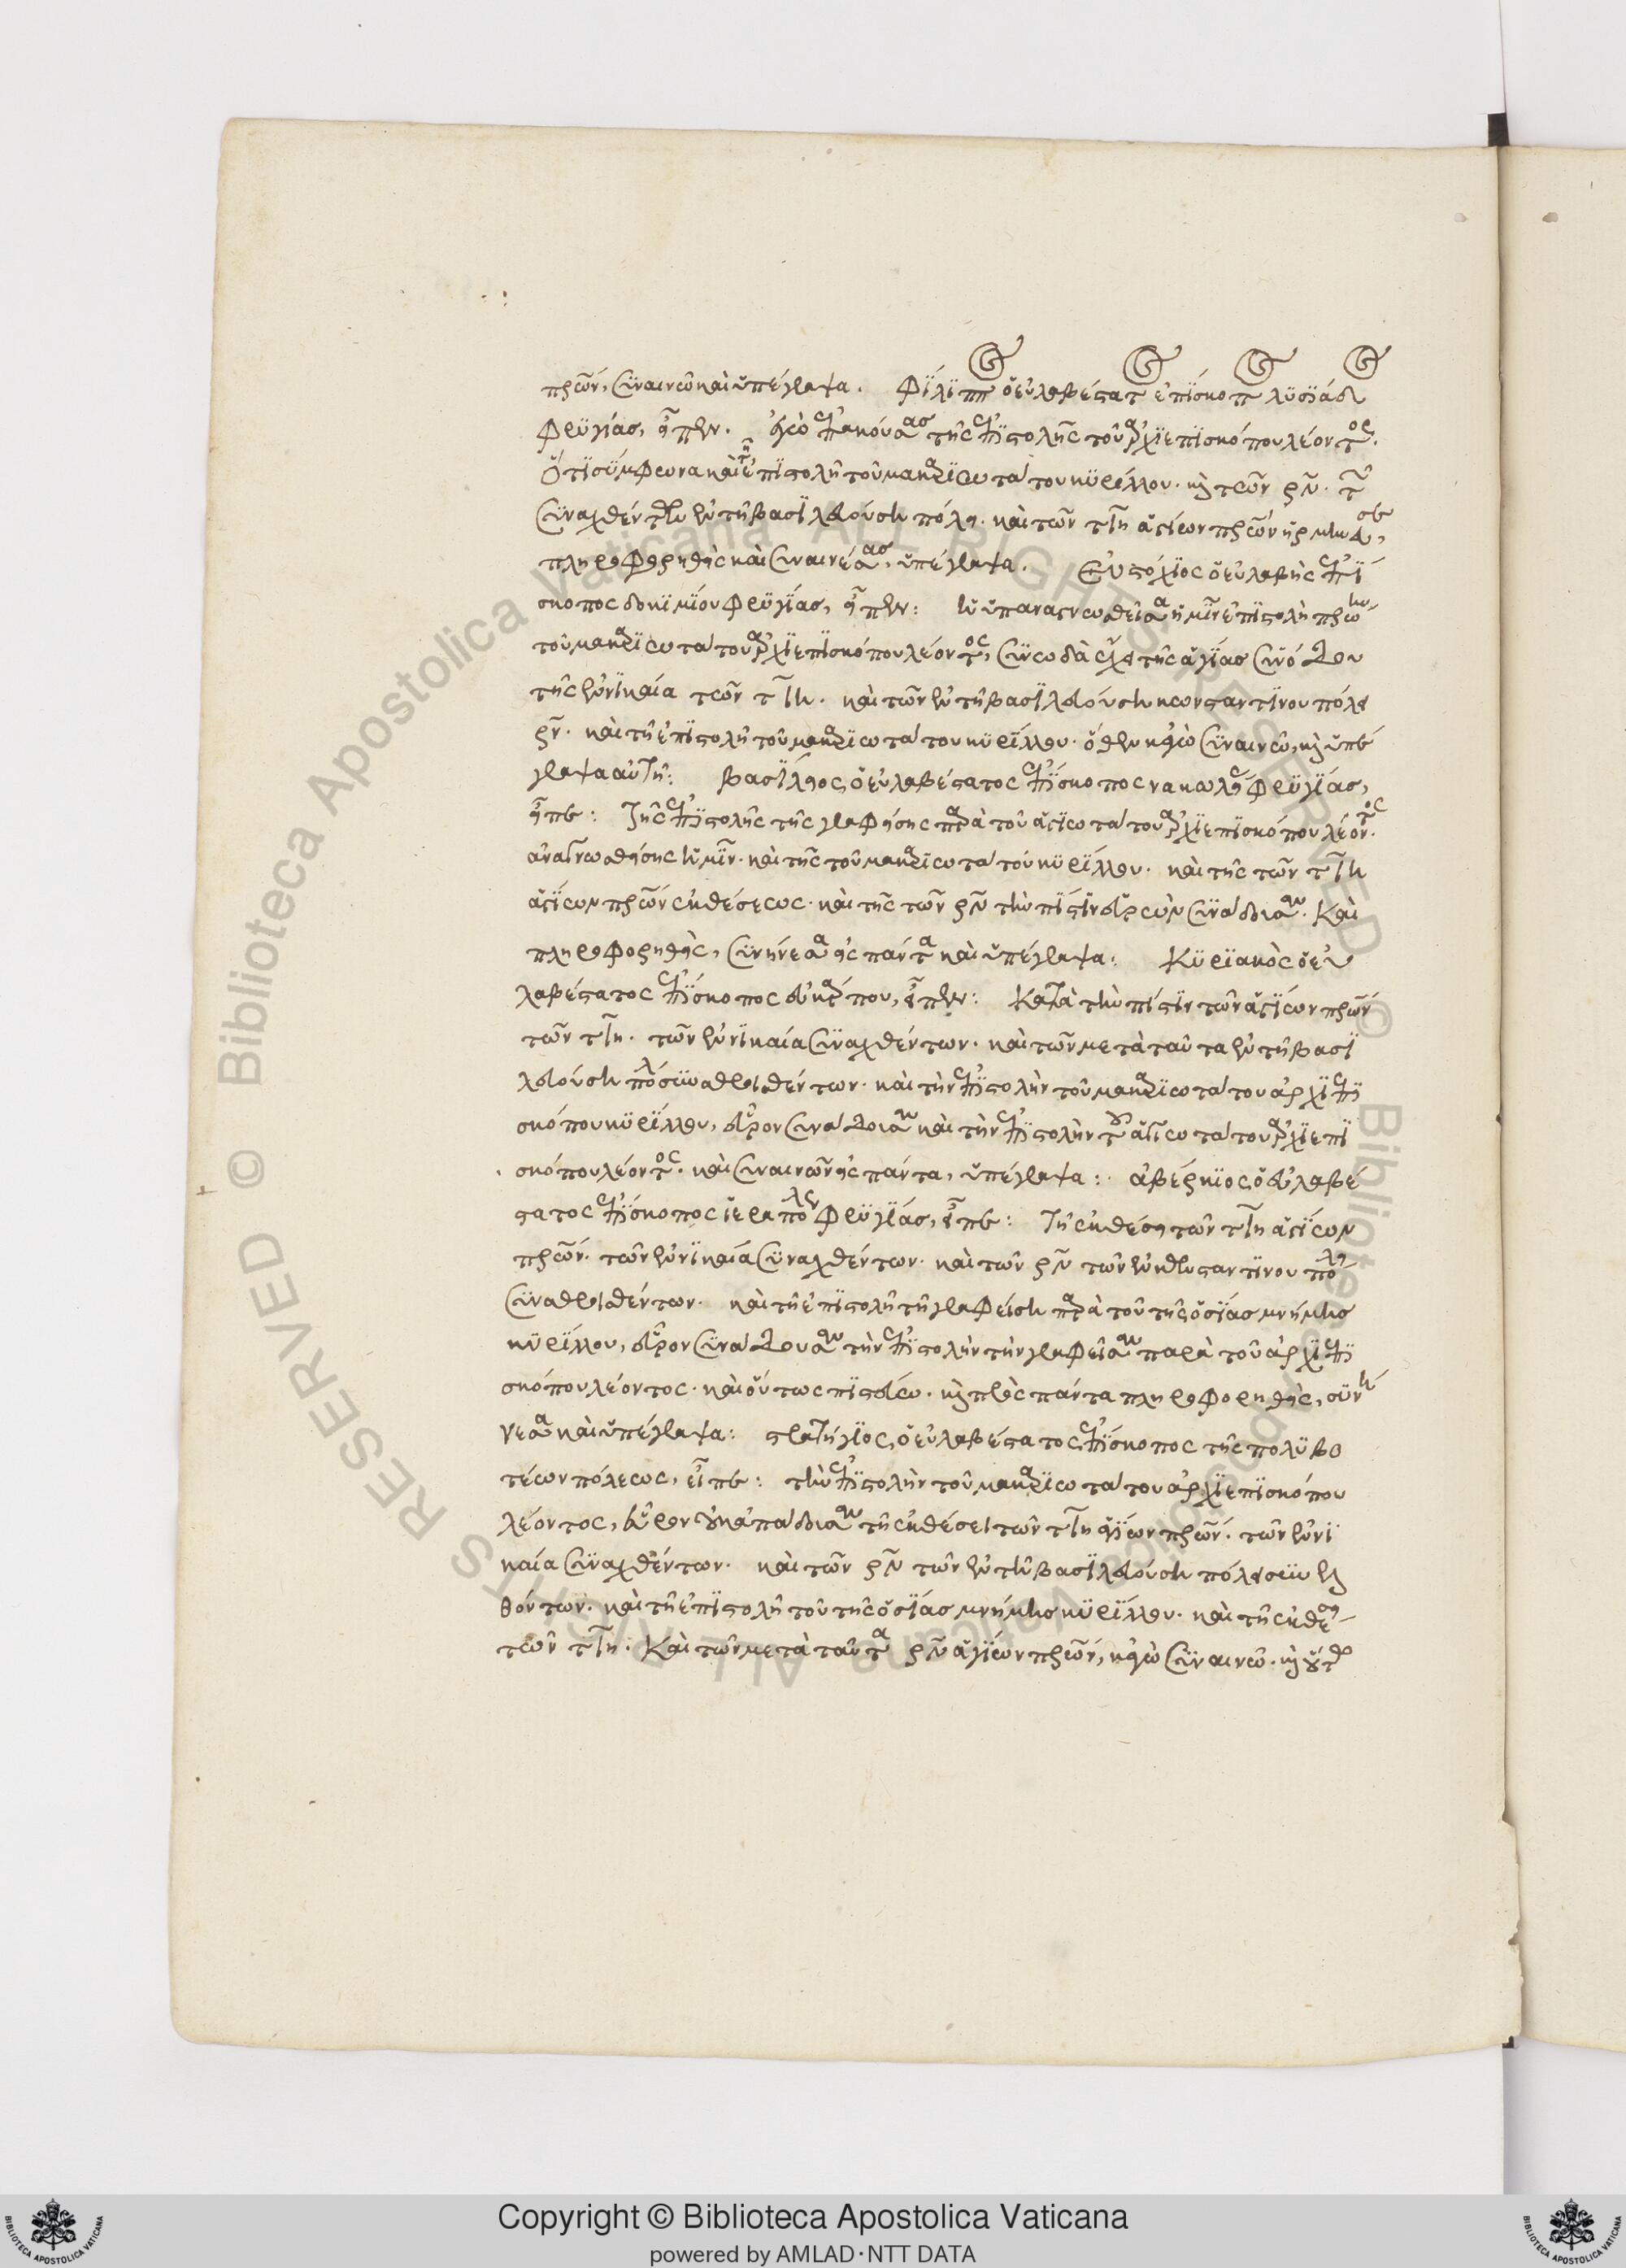 πρων, συναινῶ καὶ ὑπέγραψα. Φίλιππος ὁ εὐλαβέστατος ἐπίσκοπος λυσιάδος
Φρυγίας, εἶπεν. ἐγὼ ἐπακούσας τῆς ἐπιστολῆς τοῦ ἀρχιεπισκόπου λέοντος.
ὅτι σύμφωνα καὶ τῇ ἐπιστολῇ τοῦ μακαριωτάτου κυρίλλου. καὶ τῶν ρν. τῶν
συναχθέντων ἐν τῇ βασιλευούσῃ πόλει. καὶ τῶν τιη ἁγίων πρων ἡρμήνευσε,
πληροφορηθεὶς καὶ συναινέσας, ὑπέγραψα. Εὐστόχιος ὁ εὐλαβὴς ἐπί
σκοπος δοκιμίου Φρυγίας, εἶπεν: ἡ ὑπαναγνωσθεῖσα ἡμῖν ἐπιστολὴ πρώην
τοῦ μακαριωτάτου ἀρχιεπισκόπου λέοντος, συνῳδὰ ἔχει τῆς ἁγίας συνόδου
τῆς ἐν νικαία τῶν τιη. καὶ τῶν ἐν τῇ βασιλευούσῃ κωνσταντίνου πόλει
ρν. καὶ τῇ ἐπιστολῇ τοῦ μακαριωτάτου κυρίλλου. ὅθεν κἀγὼ συναινῶ, καὶ ὑπέ
γραψα αὐτῇ: βασίλειος ὁ εὐλαβέστατος ἐπίσκοπος νακωλείας Φρυγίας,
εἶπε: τῆς ἐπιστολῆς τῆς γραφείσης παρὰ τοῦ ἁγιωτάτου ἀρχιεπισκόπου λέοντος.
ἀναγνωσθείσης ἡμῖν. καὶ τῆς τοῦ μακαριωτάτου κυρίλλου. καὶ τῆς τῶν τιη
ἁγίων πρων ἐκθέσεως. καὶ τῆς τῶν ρν τὴν πίστιν εὑρὼν συνάδουσαν. Καὶ
πληροφορηθεὶς, συνήνεσα εἰς πάντα καὶ ὑπέγραψα: Κυριακὸς ὁ εὐ
λαβέστατος ἐπίσκοπος εὐκαρπου, εἶπεν: Κατὰ τὴν πίστιν τῶν ἁγίων πρων
τῶν τιη. τῶν ἐν νικαία συναχθέντων. καὶ τῶν μετὰ ταῦτα ἐν τῇ βασι
λευούσῃ πόλει συναθροισθέντων. καὶ τὴν ἐπιστολὴν τοῦ μακαριωτάτου ἀρχιεπι
σκόπου κυρίλλου, εὗρον συνάδουσαν καὶ τὴν ἐπιστολὴν τοῦ ἁγιωτάτου ἀρχιεπι
σκόπου λέοντος. καὶ συναινῶν εἰς πάντα, ὑπέγραψα: ἀβέρκιος ὁ εὐλαβέ
στατος ἐπίσκοπος ἱεραπόλεως Φρυγίας, εἶπε: τῇ ἐκθέσει τῶν τιη ἁγίων
πρων. τῶν ἐν νικαία συναχθέντων. καὶ τῶν ρν τῶν ἐν κωνσταντίνου πόλει
συναθροισθέντων. καὶ τῇ ἐπιστολῇ τῇ γραφείσῃ παρὰ τοῦ τῆς ὁσίας μνήμης
κυρίλλου, εὗρον συνάδουσαν τὴν ἐπιστολὴν τὴν γραφεῖσαν παρὰ τοῦ ἀρχιεπι
σκόπου λέοντος. καὶ οὕτως πιστεύω. καὶ πρὸς πάντα πληροφορηθεὶς, συνή
νεσα καὶ ὑπέγραψα: στρατήγιος, ὁ εὐλαβέστατος ἐπίσκοπος τῆς πολυβο
τέων πόλεως, εἶπε: τὴν ἐπιστολὴν τοῦ μακαριωτάτου ἀρχιεπισκόπου
λέοντος, εὗρον οὐκ ἀπάδουσαν τῆς ἐκθέσει τῶν τιη ἁγίων πρων. τῶν ἐν νι
καία συναχθέντων. καὶ τῶν ρν τῶν ἐν τῇ βασιλευούσῃ πόλει συνελ
θόντων. καὶ τῇ ἐπιστολῇ τοῦ τῆς ὁσίας μνήμης κυρίλλου. καὶ τῇ ἐκθέσει
τῶν τιη. Καὶ τῶν μετὰ ταῦτα ρν ἁγίων πρων, κἀγὼ συναινῶ. καὶ οὕτω
Copyright © Biblioteca Apostolica Vaticana
powered by AMLAD·NTT DATA